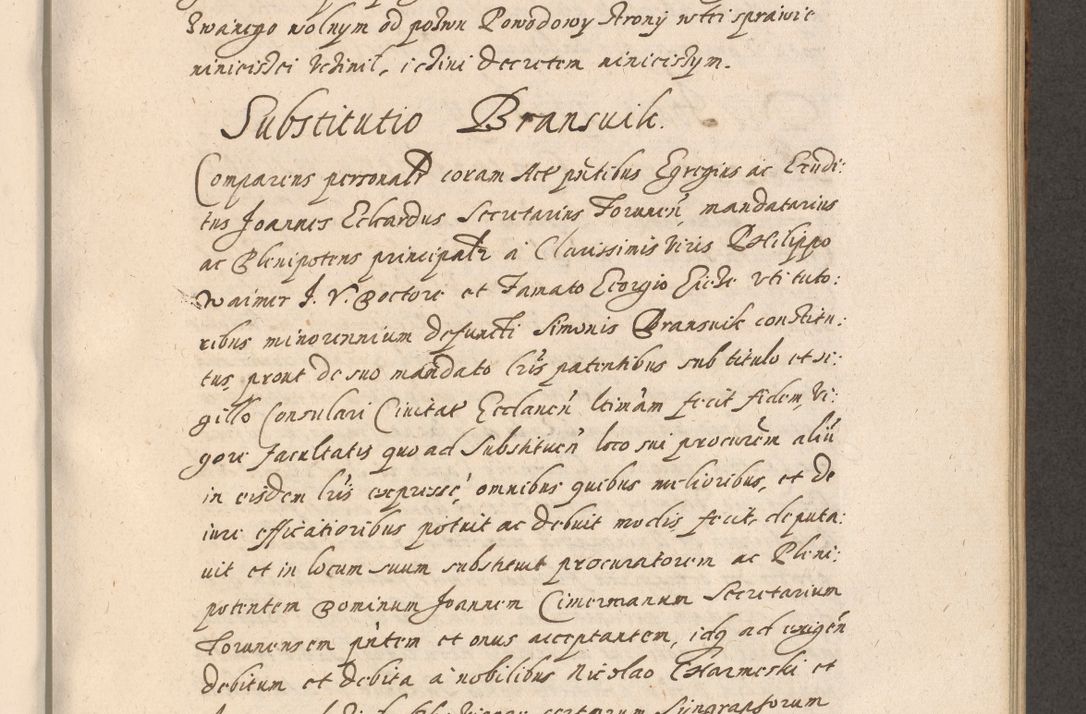 zwanego wolnym od pozwu Powodowy strony w tei sprawie
ninieiszei Vczinil, i czini decretem ninieiszym.
Substitutio Bransuik.
Comparens personalr coram Act pntibus Egregius ac Erudi:
tus Joannes Eckardus Secretarius Torunen̄ mandatarius
ac Plenipotens principalr a Clarissimis Viris Philippo
Waimer J. V. Doctore et Famato Georgio vti tuto:
ribus minorennium defuncti Simonis Bransuik constitu:
tus, prout de suo mandato lris patentibus sub titulo et si:
gillo Consulari Ciuitat fecit fidem, Vi:
gore facultatis quo ad Substituen̄ loco sui procurem aliu
in eisdem lris expresse, omnibus quibus melioribus, et de
iure efficatioribus potuit ac debuit modis fecit, deputa:
uit et in locum suum substituit procuratorem ac Pleni:
potentem Dominum Joannem Cimermanum Secretarium
Torunensem pntem et onus acceptantem, idq ad exigen̄
debitum et debita a nobilibus Nicolao Charmeski et
certorum Singraphorum